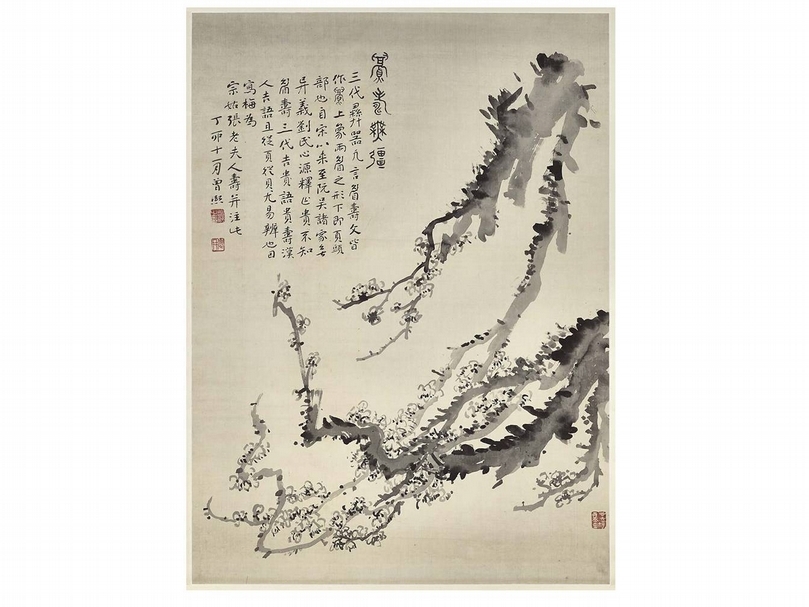 眉壽無疆
三代彝器凡言眉壽文皆
作上象兩眉之形下即頁頭
部也自宋以來至阮吳諸家無
异義劉氏心源釋貴不知
眉壽三代吉貴語貴壽漢
人吉語且從頁從貝尤易辨也因
寫梅為
宗姑張老夫人壽并注此
丁卯十一月曾熙